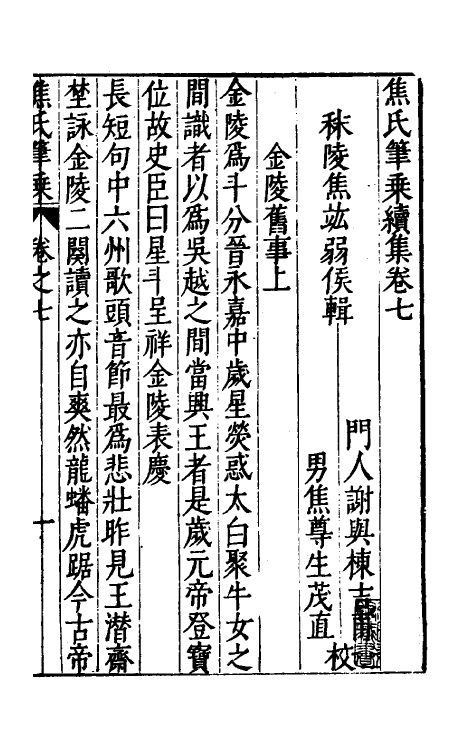 焦氏筆乘續集卷七
秣陵焦竑弱侯輯
門人謝與棟
男焦尊生茂直
校
金陵舊事上
金陵爲斗分晉永嘉中歲星熒惑太白聚牛女之
間識者以爲吳越之間當興王者是歲元帝登寶
位故史臣曰星斗呈祥金陵表慶
長短句中六州歌頭音節最爲悲壯昨見王潛齋
埜詠金陵二闋讀之亦自爽然龍蟠虎踞今古帝
焦氏筆乘 卷之七 十